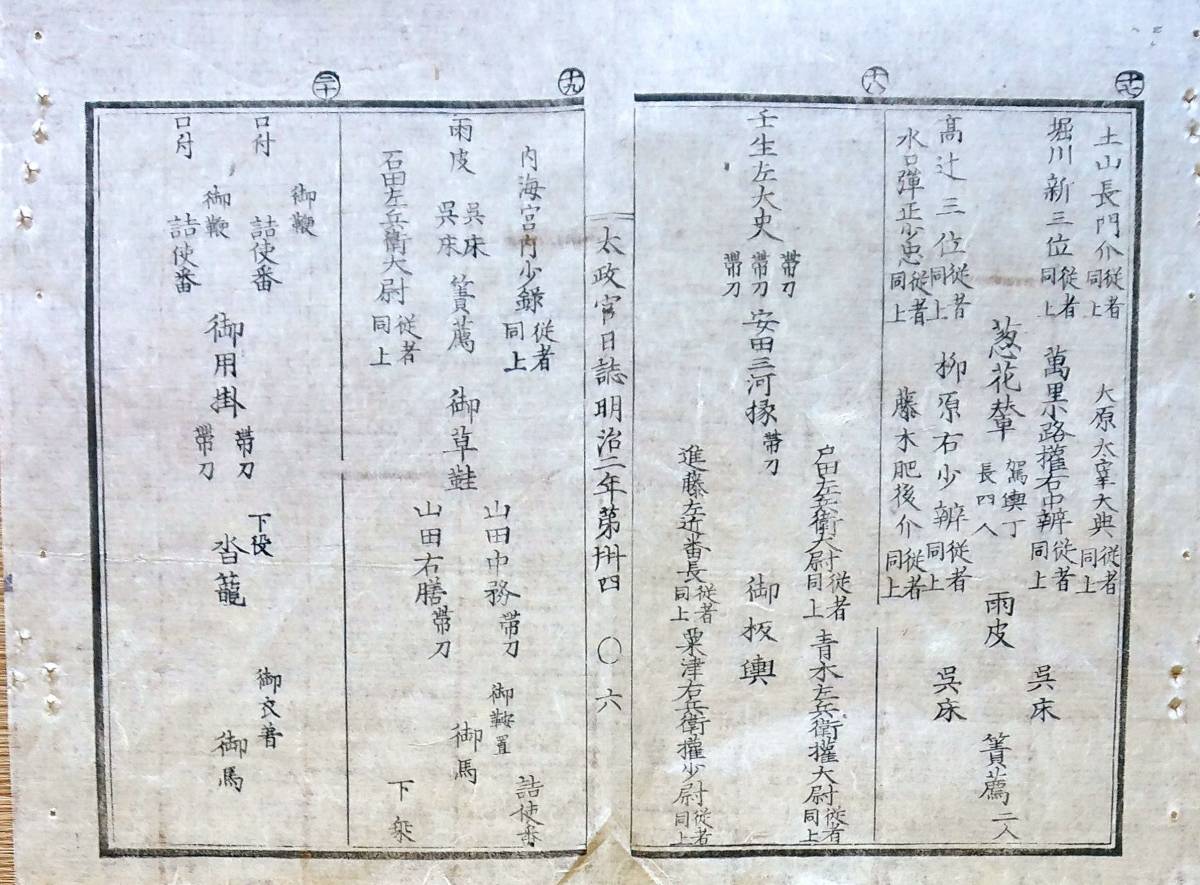 土山長門介 従者同上
大原太宰大典 従者同上
堀川新三位 従者同上
萬里小路權右中辨 従者同上
葱花輦
駕輿丁
長四人
雨皮
呉床
呉床
簀薦 二人
髙辻三位 従者同上
柳原右少辨 従者同上
水口彈正少忠 従者同上
藤木肥後介 従者同上
十八
壬生左大史
帯刀
帯刀
帯刀
安田三河掾 帯刀
戸田左兵衛大尉 従者同上
青木左兵衛權大尉 従者同上
御板輿
進藤左近番長 従者同上
粟津右兵衛權少尉 従者同上
太政官日誌明治二年第卌四 〇 六
十九
内海宮内少録 従者同上
雨皮
呉床
呉床
簀薦
石田左兵衛大尉 従者同上
御草鞋
山田中務 帯刀
山田右膳 帯刀
御鞍置
御馬
詰使番
下
二十
口付
口付
御鞭
詰使番
御鞭
詰使番
御用掛
帯刀
帯刀
下役
沓籠
御馬